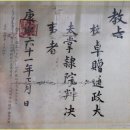 教旨
故卓贈通政大
夫掌隷院判決
事者
康熙六十一年 月 日